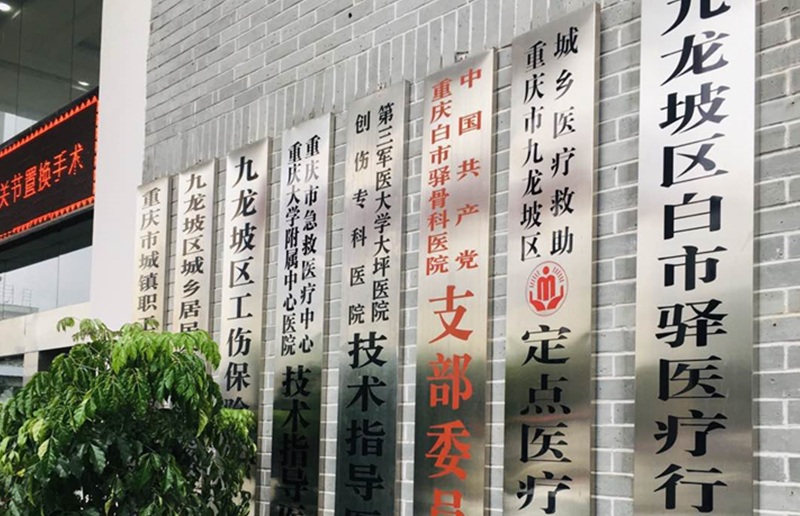 关节置换手术
重庆市城镇职工
九龙坡区城乡居民
九龙坡区工伤保险
重庆市急救医疗中心
重庆大学附属中心医院
技术指导医
第三军医大学大坪医院
创伤专科医院
技术指导医
中国共产党
重庆白市驿骨科医院
支部委员
城乡医疗救助
重庆市九龙坡区
定点医疗
九龙坡区白市驿医疗行